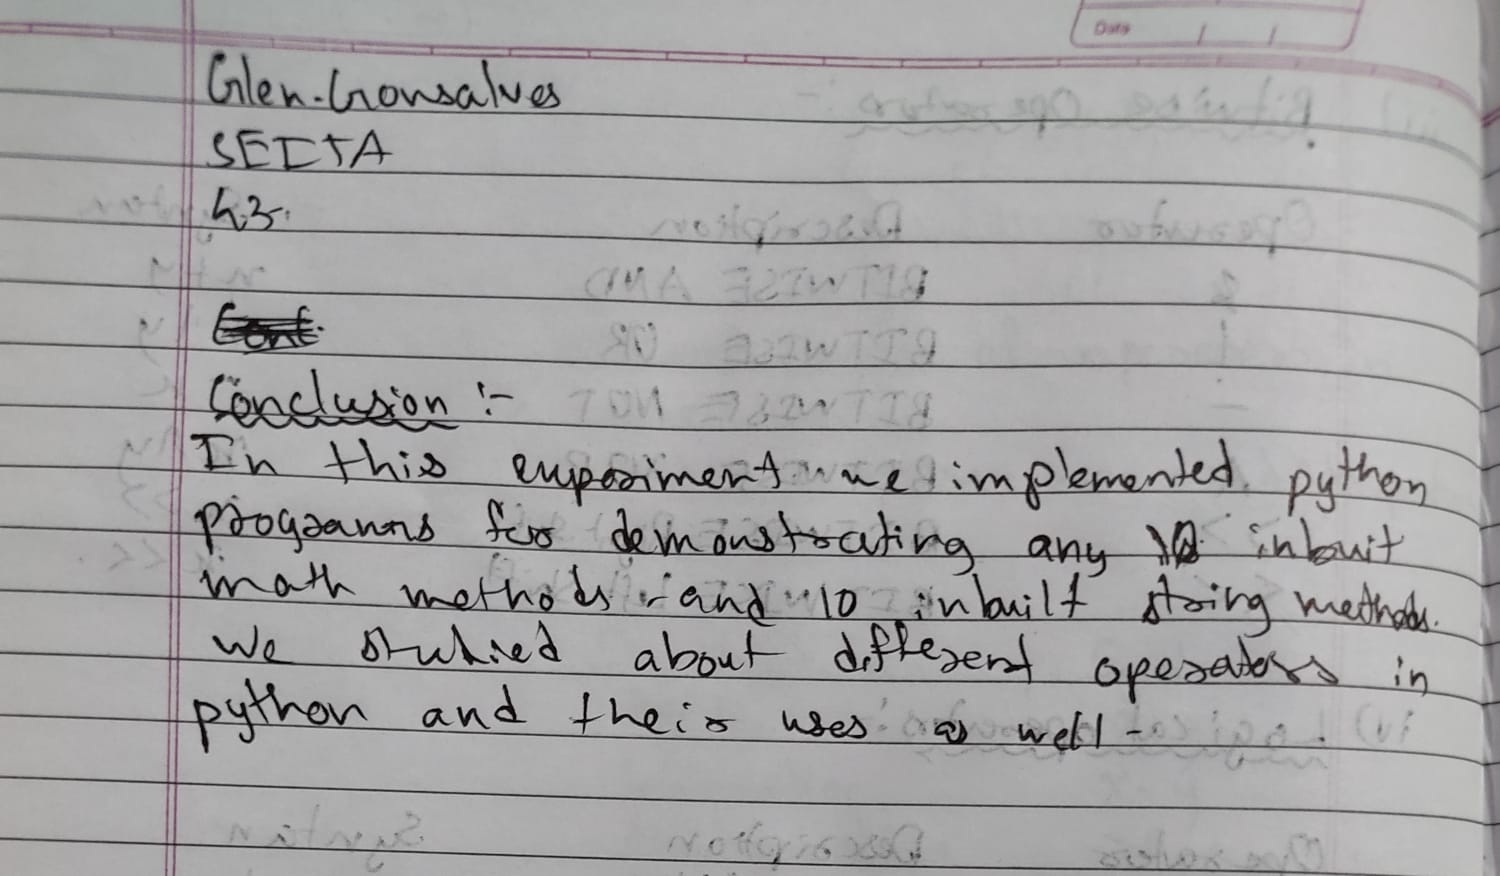 Date / /
Glen.Gonsalves
SEITA
43.
Conclusion :-
In this experiment we implemented python
programs for demonstrating any 10 inbuit
math methods and 10 inbuilt string methods.
We studied about different operators in
python and their uses as well -